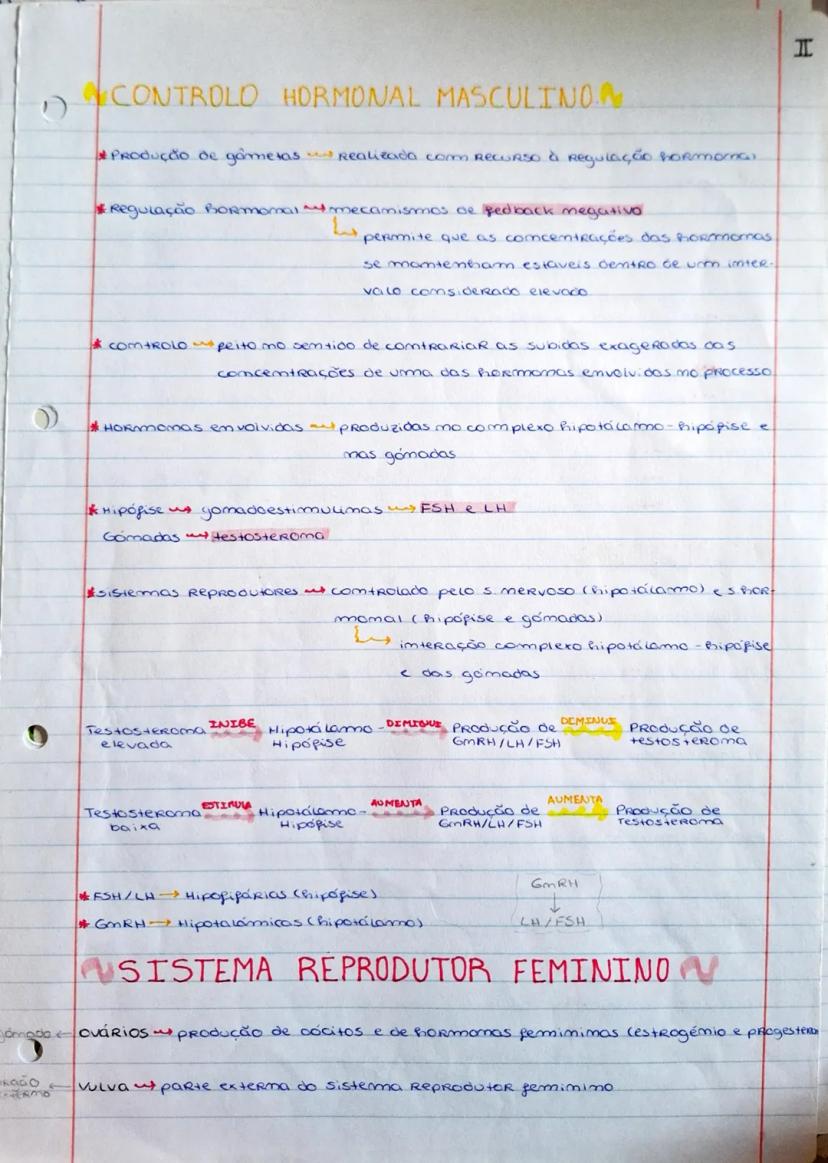 II
CONTROLO HORMONAL MASCULINO
* Produção de gâmetas → realizada com recurso à regulação hormonal
* Regulação hormonal → mecanismos de fedback negativo
↳ permite que as concentrações das hormonas
se mantenham estáveis dentro de um inter-
valo considerado elevado
* Controlo → feito no sentido de contrariar as subidas exageradas das
concentrações de uma das hormonas envolvidas no processo
* Hormonas envolvidas → produzidas no complexo hipotálamo-hipófise e
nas gónadas
* Hipófise → gonadoestimulinas → FSH e LH
Gónadas → testosterona
* Sistemas reprodutores → controlado pelo s. nervoso (hipotálamo) e s. hor-
monal (hipófise e gónadas)
↳ interação complexo hipotálamo-hipófise
e das gónadas
Testosterona INIBE Hipotálamo- DIMINUI Produção de DEMINUI Produção de
elevada Hipófise GnRH/LH/FSH testosterona
Testosterona ESTIMULA Hipotálamo- AUMENTA Produção de AUMENTA Produção de
baixa Hipófise GnRH/LH/FSH Testosterona
* FSH/LH → Hipofifárias (hipófise)
* GnRH → Hipotalâmicas (hipotálamo)
GnRH
↓
LH/FSH
SISTEMA REPRODUTOR FEMININO
ovários → produção de oócitos e de hormonas femininas (estrogénio e progestero
vulva → parte externa do sistema reprodutor feminino